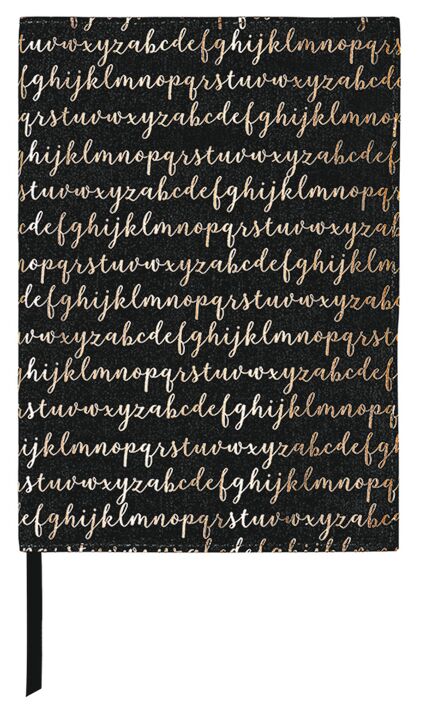 tuvwxyzabcdefghijklmnopqrs
fghijklmnopqrstuvwxyzabcd
qrstuvwxyzabcdefghijklmnop
ghijklmnopqrstuvwxyzabcdef
stuvwxyzabcdefghijklmnopqr
cdefghijklmnopqrstuvwxyzab
nopqrstuvwxyzabcdefghijklm
defghijklmnopqrstuvwxyzabc
vwxyzabcdefghijklmnopqrst
ghijklmnopqrstuvwxyzabcdef
rstuvwxyzabcdefghijklmnopq
ijklmnopqrstuvwxyzabcdefg
stuvwxyzabcdefghijklmnopqr
efghijklmnopqrstuvwxyzabc